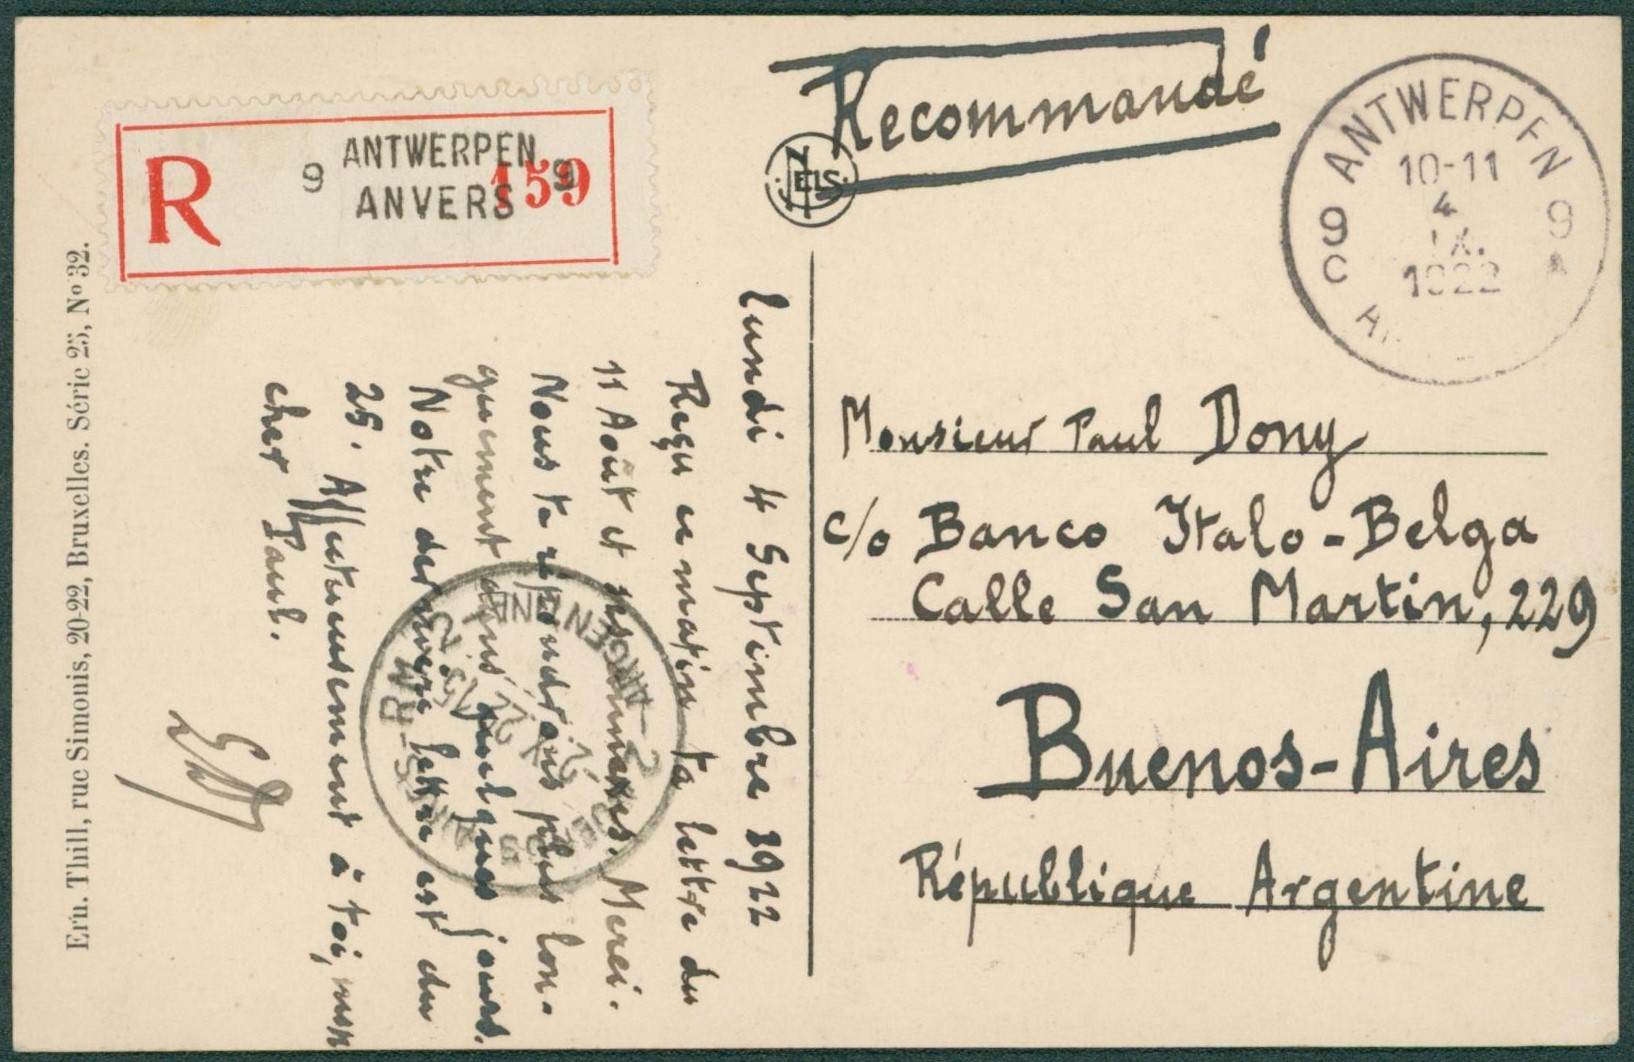 Recommandé
R
9 ANTWERPEN 9
ANVERS
159
NELS
ANTWERPEN
10-11
4
IX.
1922
9 9
C A
lundi 4 Septembre 1922
Reçu ce matin ta lettre du
11 Août et annexes. Merci.
Nous te répondrons plus lon-
guement dans quelques jours.
Notre dernière lettre est du
25. Affectueusement à toi, mon
cher Paul.
Monsieur Paul Dony
c/o Banco Italo-Belga
Calle San Martin, 229
Buenos-Aires
République Argentine
Ern. Thill, rue Simonis, 20-22, Bruxelles. Série 25, No 32.